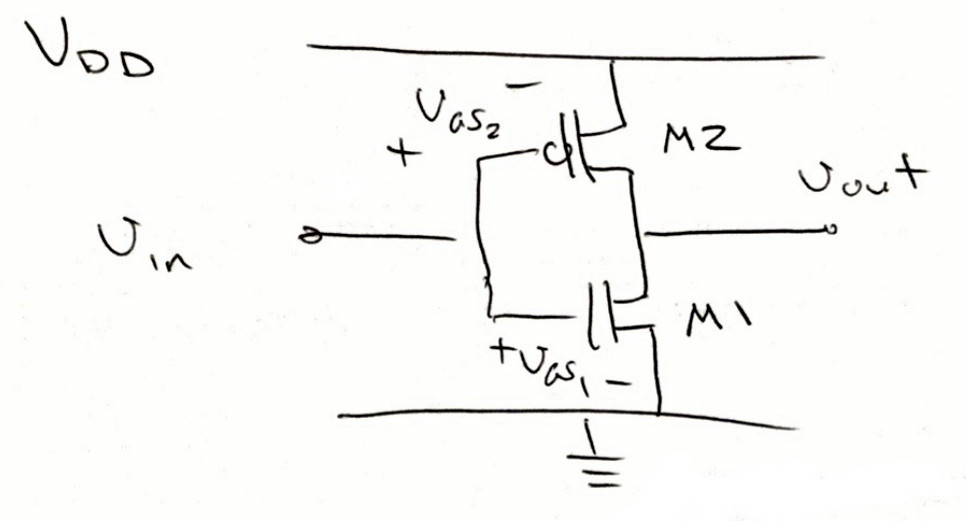 VDD
VGS2 −
+
M2
Vout
Vin
M1
+ VGS1 −